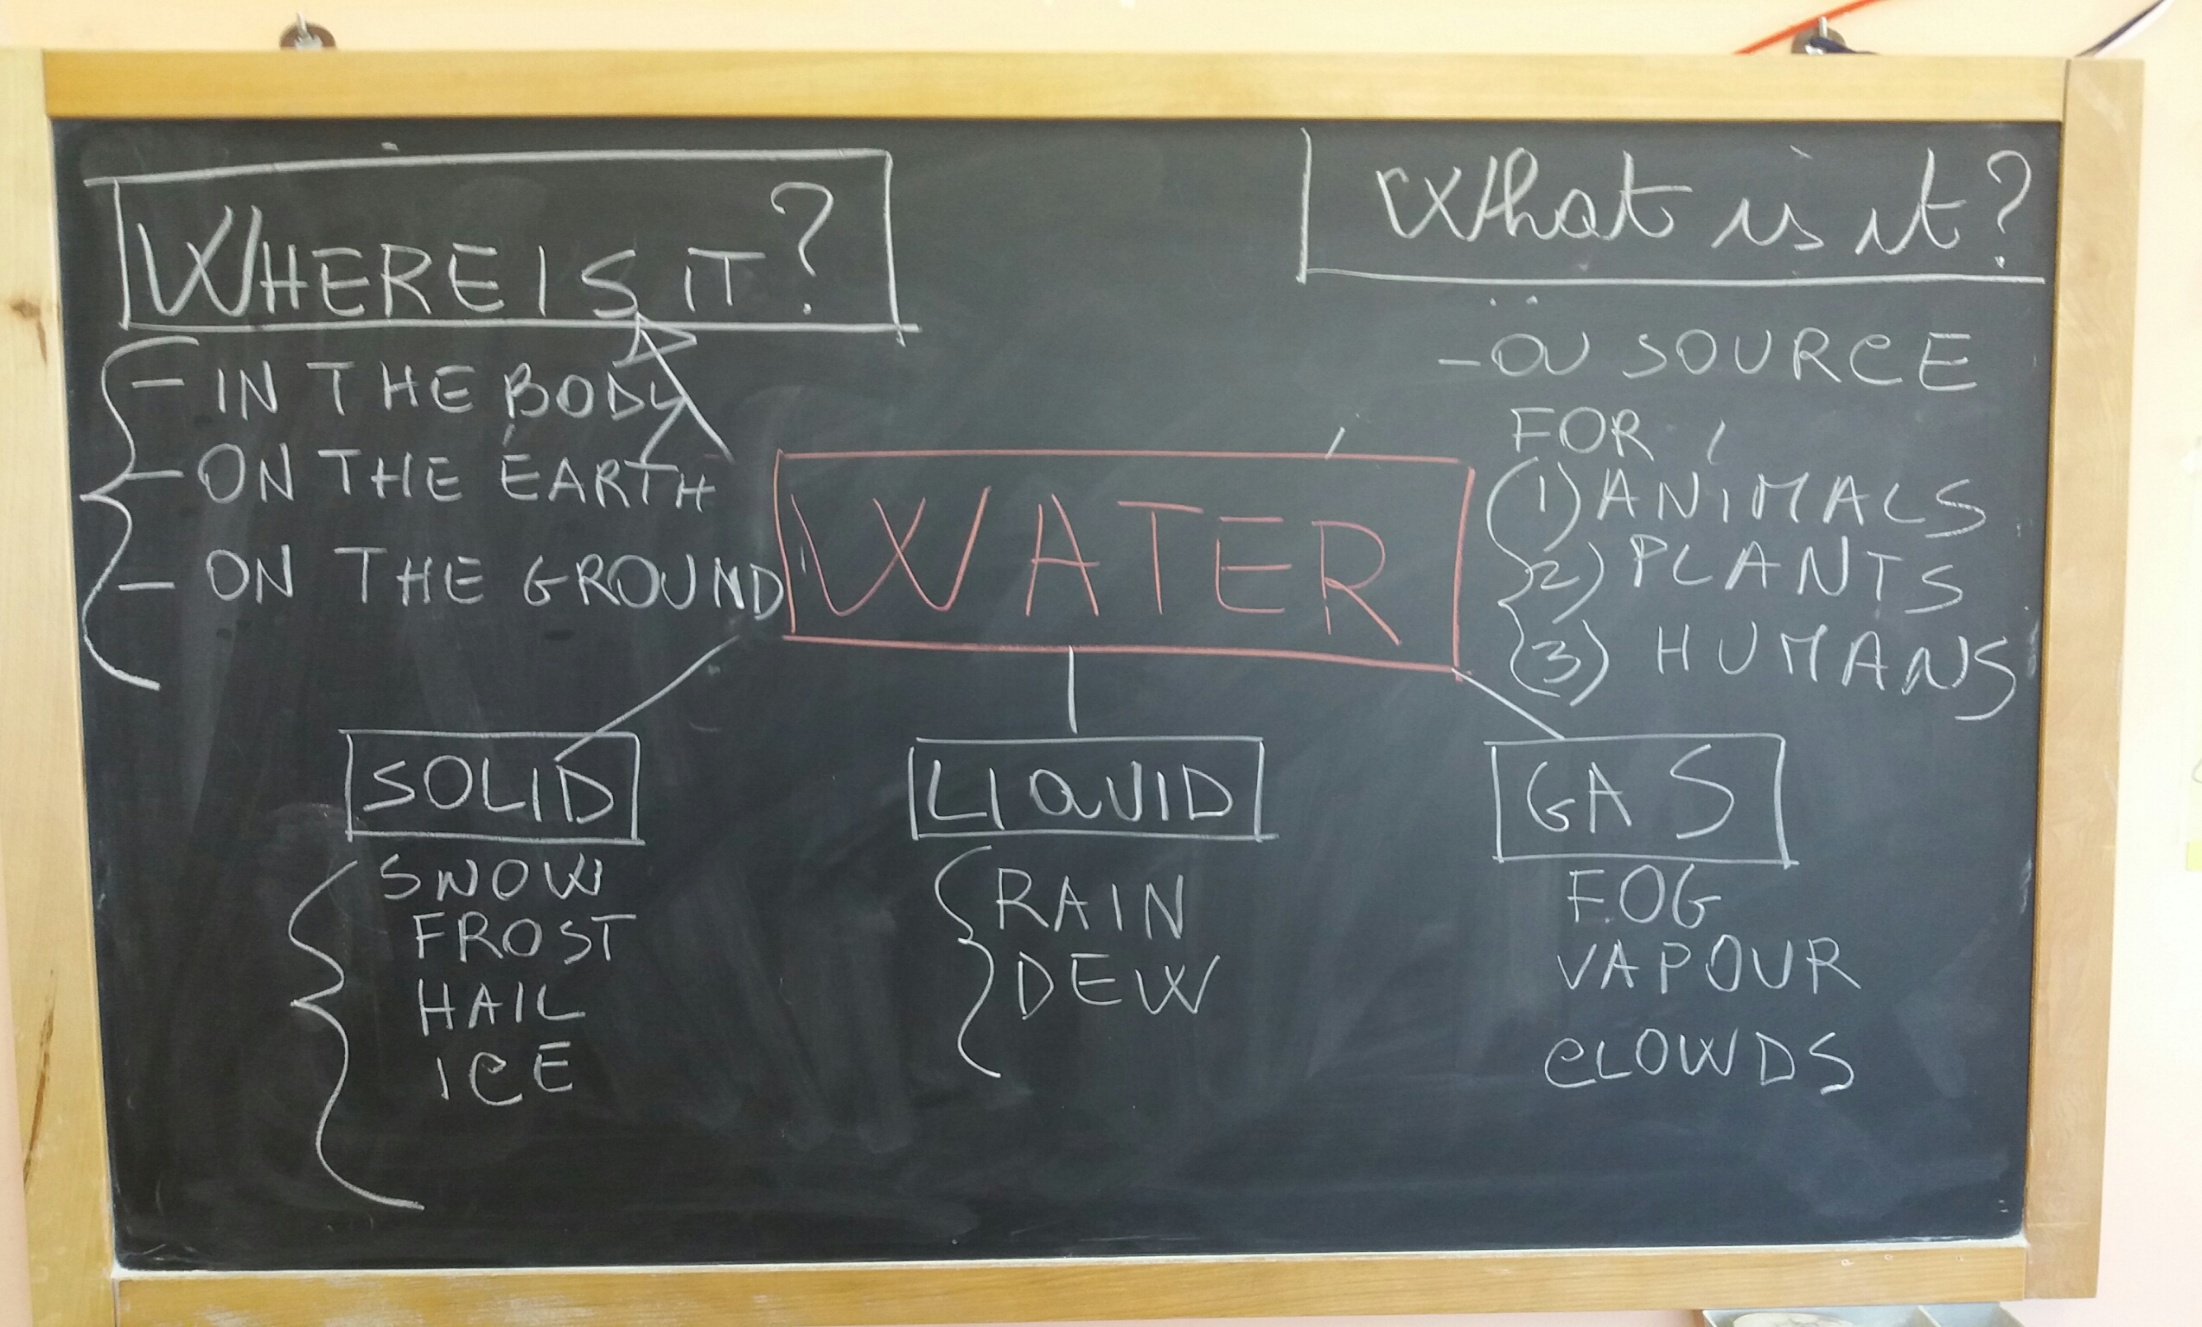 WHERE IS IT?
- IN THE BODY
- ON THE EARTH
- ON THE GROUND
What is it?
- OU SOURCE
FOR
(1) ANIMALS
2) PLANTS
(3) HUMANS
WATER
SOLID
SNOW
FROST
HAIL
ICE
LIQUID
RAIN
DEW
GAS
FOG
VAPOUR
CLOWDS